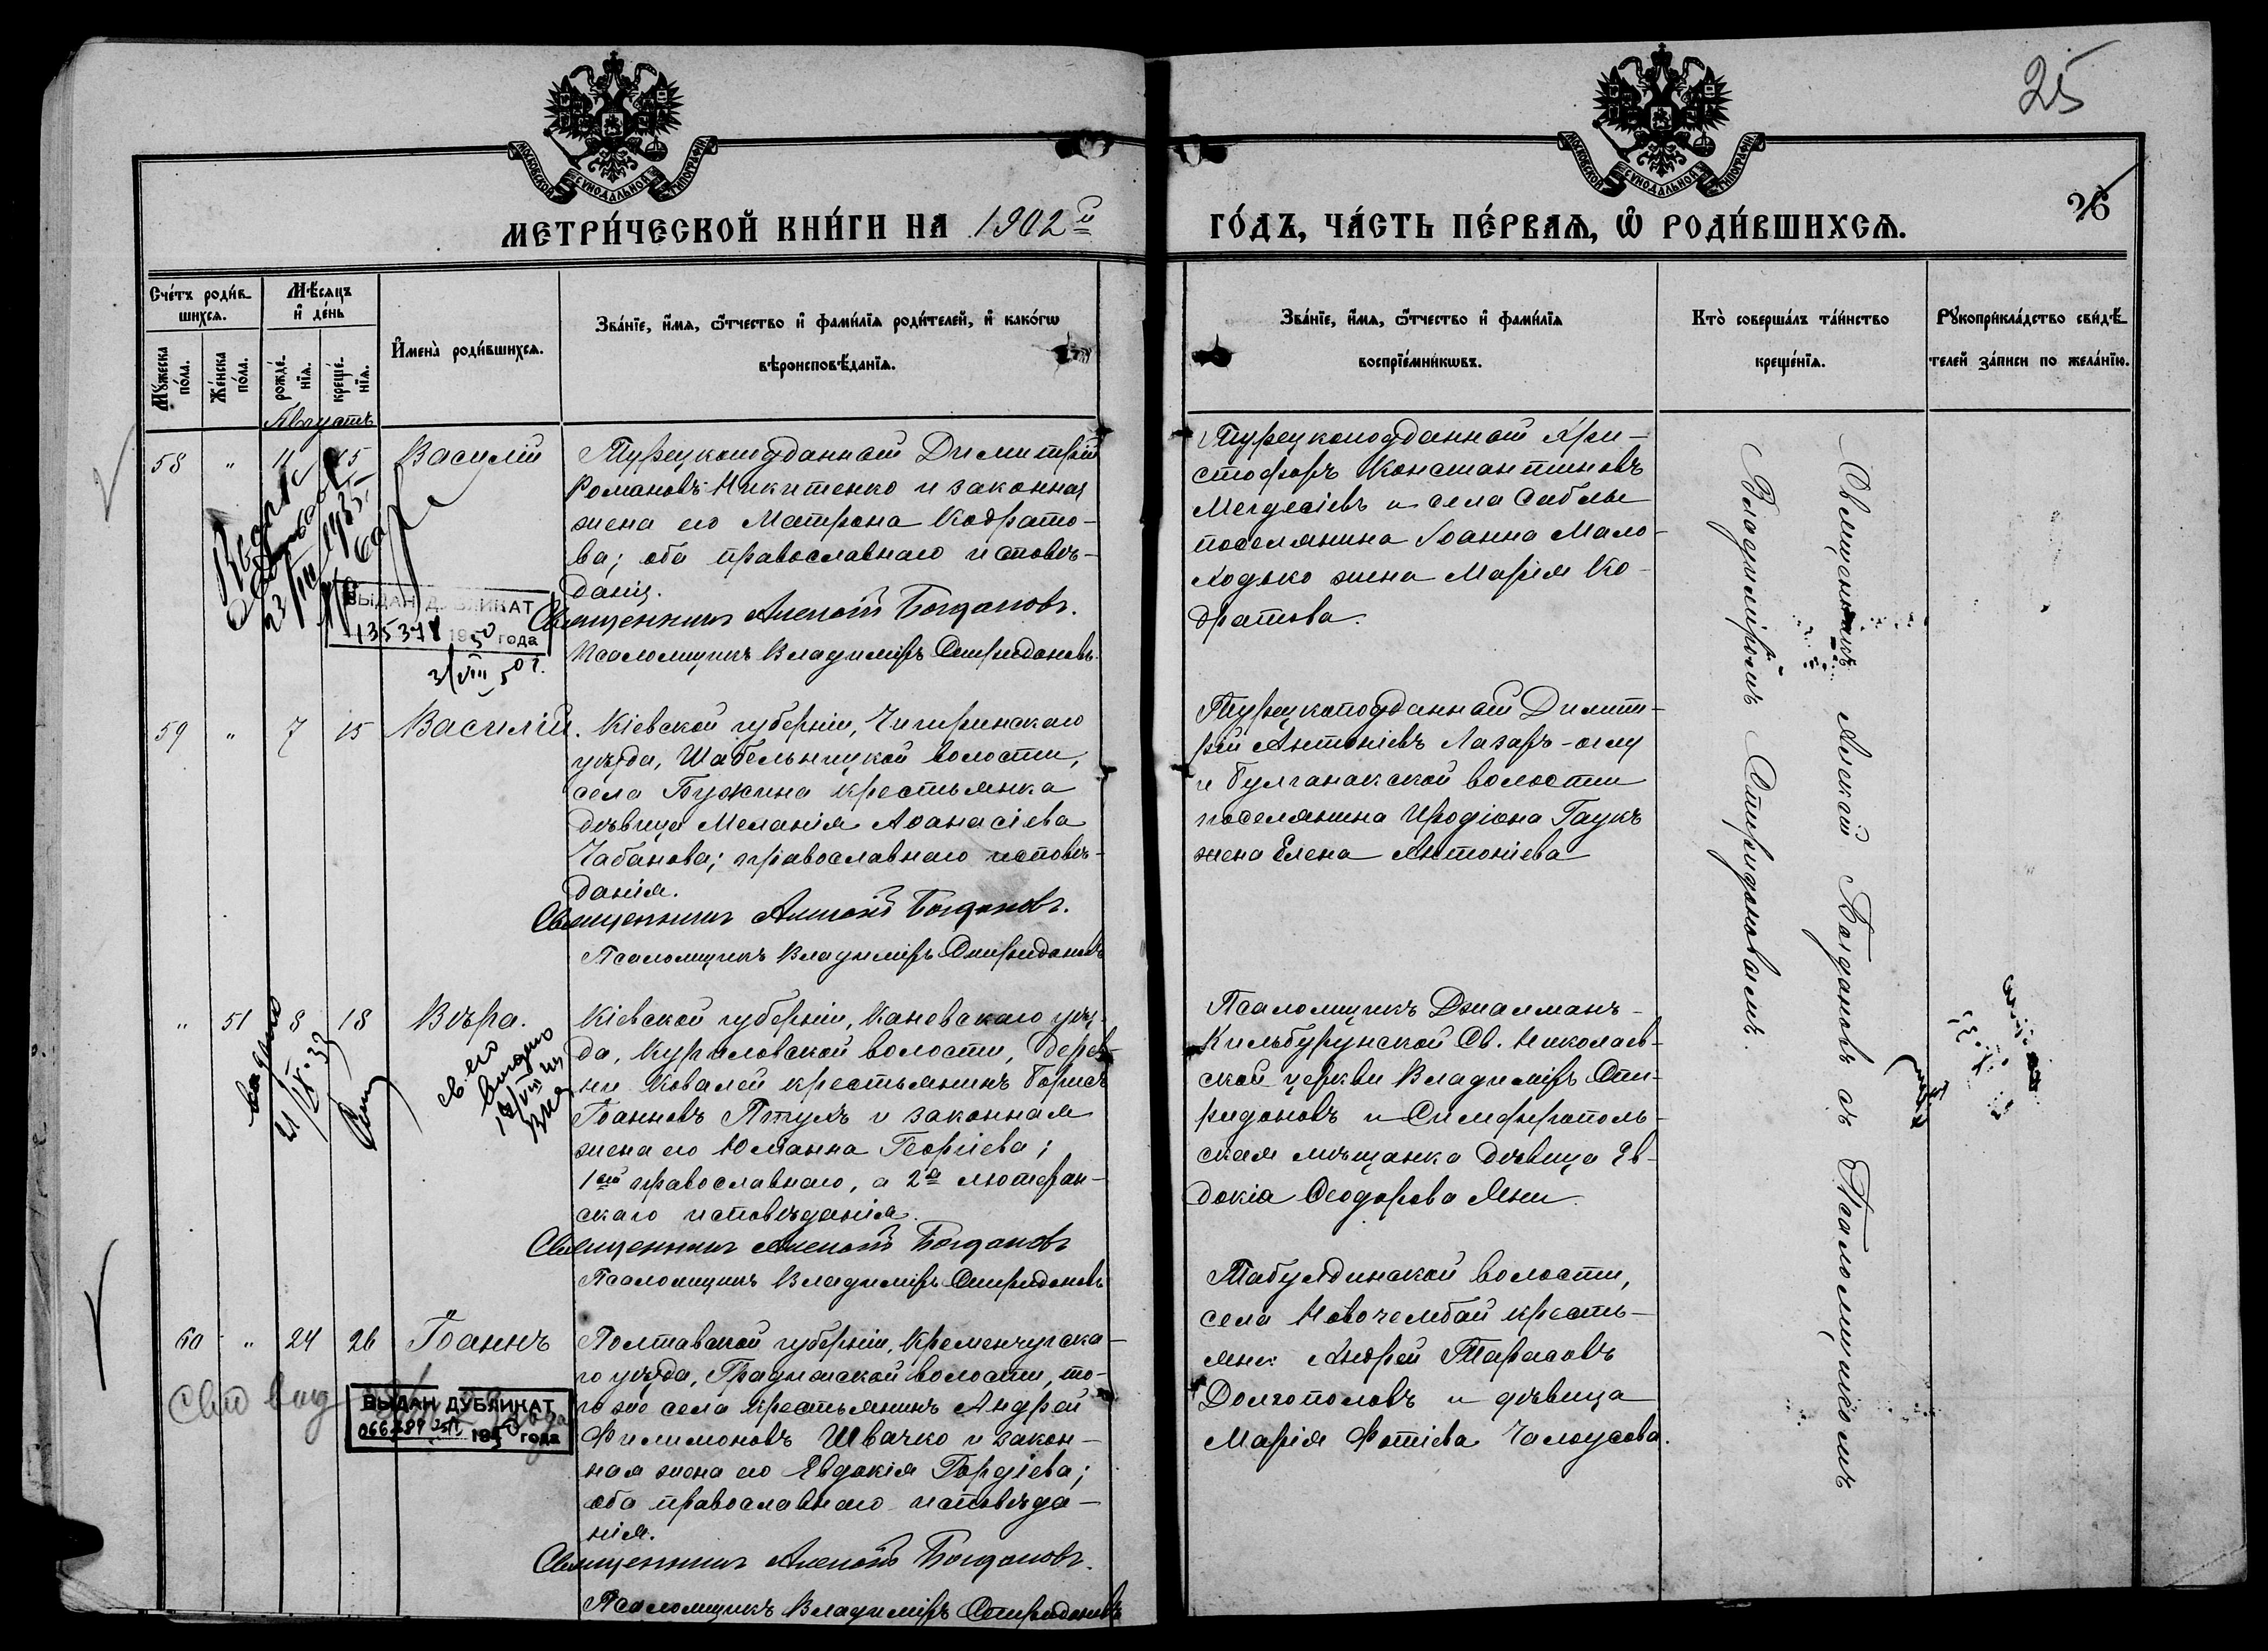 25
26
МОСКОВСКОЙ СѴНОДАЛЬНОЙ ТИПОГРАФІИ
МОСКОВСКОЙ СѴНОДАЛЬНОЙ ТИПОГРАФІИ
МЕТРИ́ЧЕСКОЙ КНИ́ГИ НА 1902й
ГО́ДЪ, ЧА́СТЬ ПЕ́РВАѦ, Ѡ РОДИ́ВШИХСѦ.
Сче́тъ роди́в-
шихсѧ.
Мѣ́сѧцъ
и де́нь
Мꙋ́жеска
по́ла.
Же́нска
по́ла.
рожде́-
нїѧ.
креще́-
нїѧ.
Имена̀ роди́вшихсѧ.
Зва́нїе, и́мѧ, ѻ́тчество и фами́лїѧ роди́телей, и како́гѡ
вѣроисповѣ́данїѧ.
Зва́нїе, и́мѧ, ѻ́тчество и фами́лїѧ
воспрїе́мникѡвъ.
Кто̀ соверша́лъ та́инство
креще́нїѧ.
Рꙋкоприкла́дство свидѣ́-
телей за́писи по жела́нїю.
Августъ
58 " 11 15 Василій
Турецкоподданный Димитрій
Романовъ Никитенко и законная
жена его Матрона Кодрато-
ва; оба православнаго исповѣ-
данія.
Священникъ Алексій Богдановъ.
Псаломщикъ Владиміръ Спиридоновъ.
ВЫДАН ДУБЛИКАТ
1950 года
3/VIII 50 г.
Турецкоподданный Хри-
стофоръ Константиновъ
и села Саблы
поселянина Іоанна Мало-
ходько жена Марія Ко-
дратова.
59 " 7 15 Василій.
Кіевской губерніи, Чигиринскаго
уѣзда, Шабельницкой волости,
села Бужина крестьянка
дѣвица Меланія Аѳанасіева
Чабанова; православнаго исповѣ-
данія.
Священникъ Алексій Богдановъ.
Псаломщикъ Владиміръ Спиридоновъ
Турецкоподданный Димит-
рій Антоніевъ Лазарь-оглу
и Булганакской волости
поселянина Иродіона Гаукъ
жена Елена Антоніева
" 51 8 18 Вѣра.
выдано
Кіевской губерніи, Каневскаго уѣз-
да, Куриловской волости, дерев-
ни Ковалей крестьянинъ Борисъ
Іоанновъ Птухъ и законная
жена его Юліанна Георгіева;
1ый православнаго, а 2я лютеран-
скаго исповѣданія.
Священникъ Алексій Богдановъ
Псаломщикъ Владиміръ Спиридоновъ
Псаломщикъ Джалманъ-
Кильбурунской Св. Николаев-
ской церкви Владиміръ Спи-
ридоновъ и Симферополь-
ская мѣщанка дѣвица Ев-
докія Ѳеодорова
60 " 24 26 Іоаннъ
Полтавской губерніи, Кременчугска-
го уѣзда, Градижской волости, то-
го же села крестьянинъ Андрей
Филимоновъ Швачко и закон-
ная жена его Евдокія Гордіева;
оба православнаго исповѣда-
нія.
Священникъ Алексій Богдановъ.
Псаломщикъ Владиміръ Спиридоновъ
ВЫДАН ДУБЛИКАТ
года
Табулдинской волости,
села Новочембай кресть-
яне Андрей Тарасовъ
Долгополовъ и дѣвица
Марія Фотіева Чалоусова.
Священникъ Алексій Богдановъ съ Псаломщикомъ
Владиміромъ Спиридоновымъ.